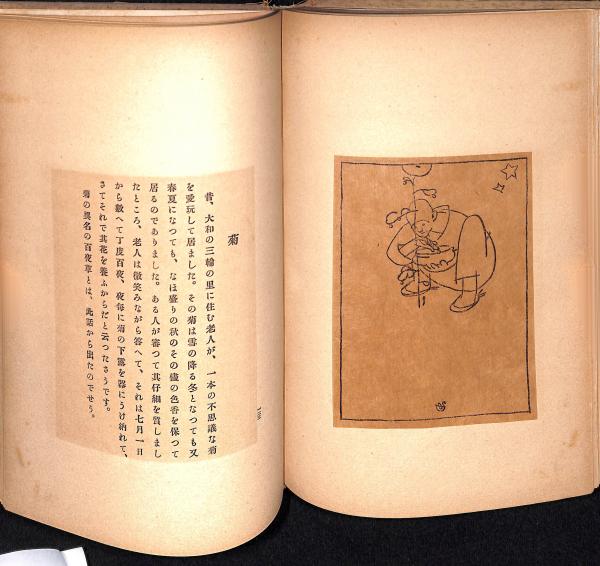 菊
昔、大和の三輪の里に住む老人が、一本の不思議な菊
を愛玩して居ました。その菊は雪の降る冬となつても又
春夏になつても、なほ盛りの秋のその儘の色香を保つて
居るのでありました。ある人が審つて其仔細を質しまし
たところ、老人は微笑みながら答へて、それは七月一日
から數へて丁度百夜、夜毎に菊の下露を器にうけ納れて、
さてそれで其花を養ふからだと云つたさうです。
菊の異名の百夜草とは、此話から出たのでせう。